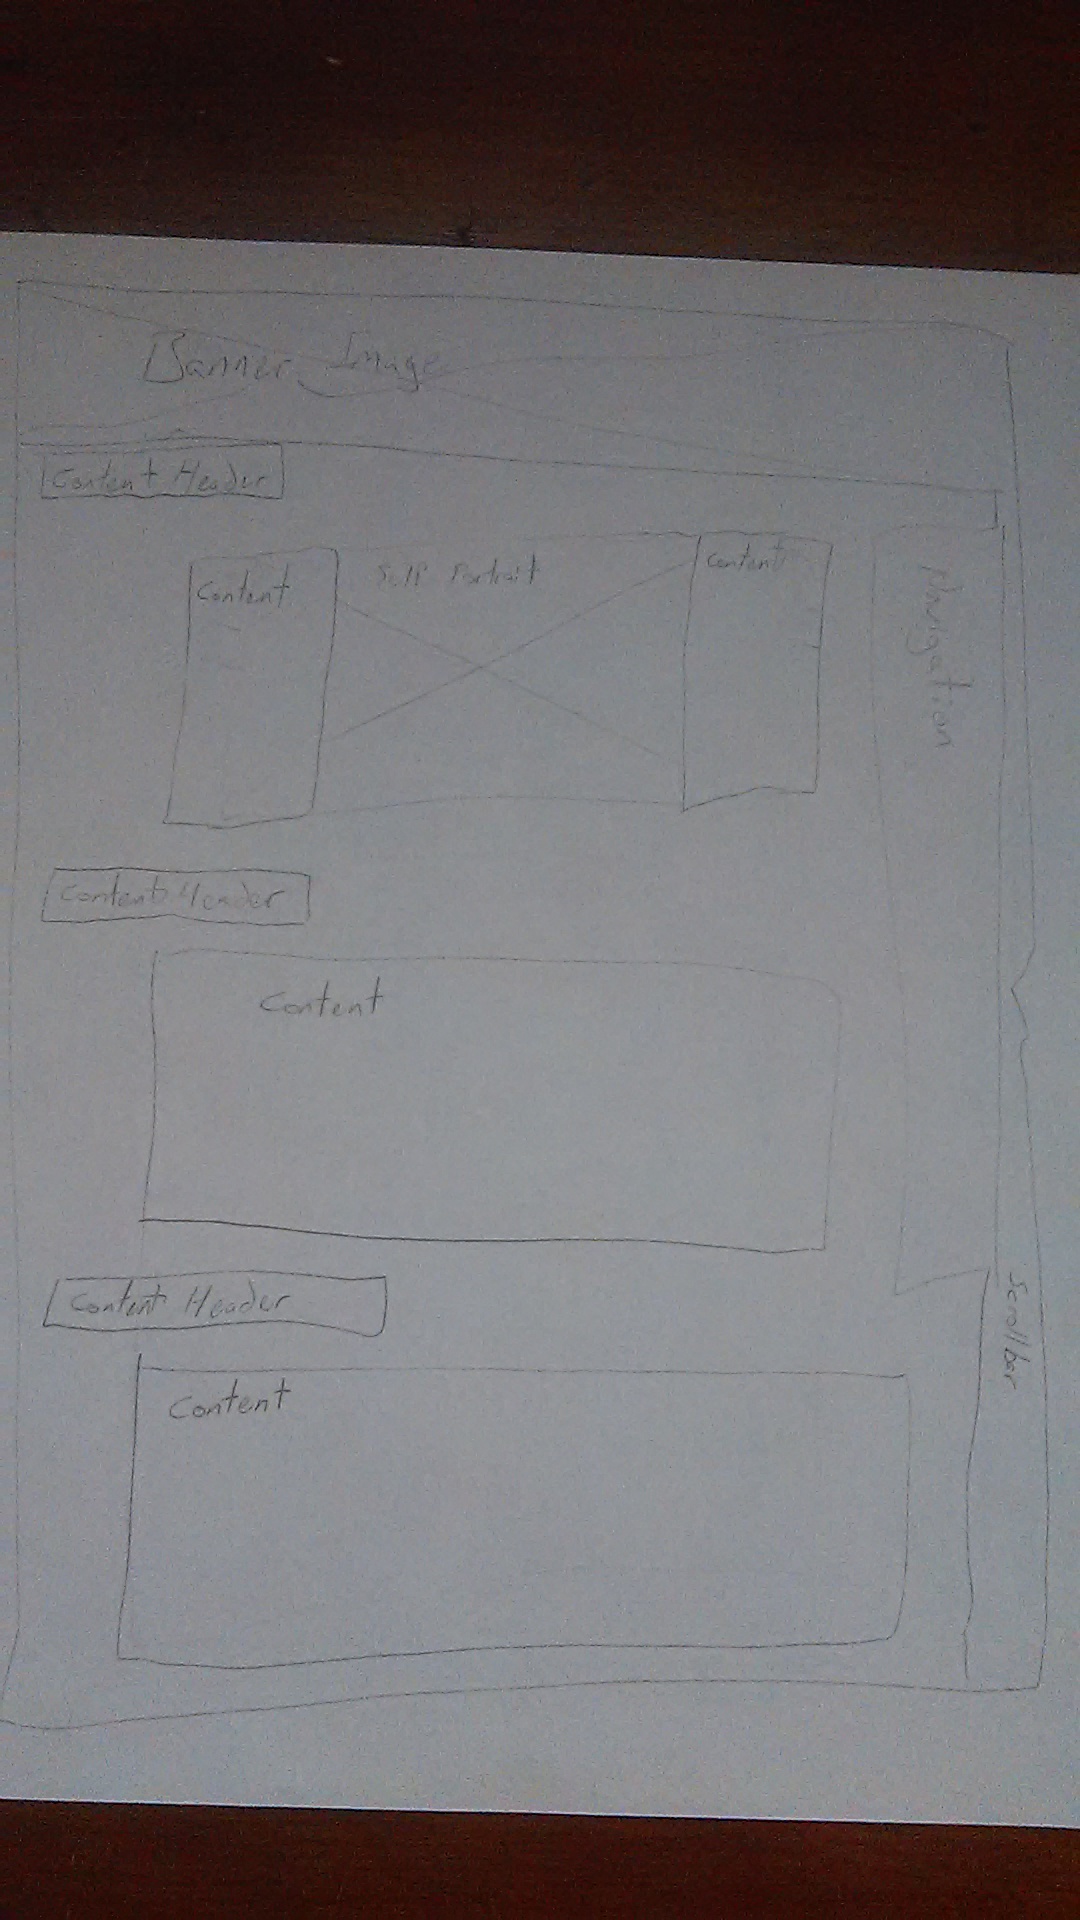 Banner Image
Content Header
Content
Self Portrait
Content
Navigation
Content Header
Content
Content Header
Scrollbar
Content